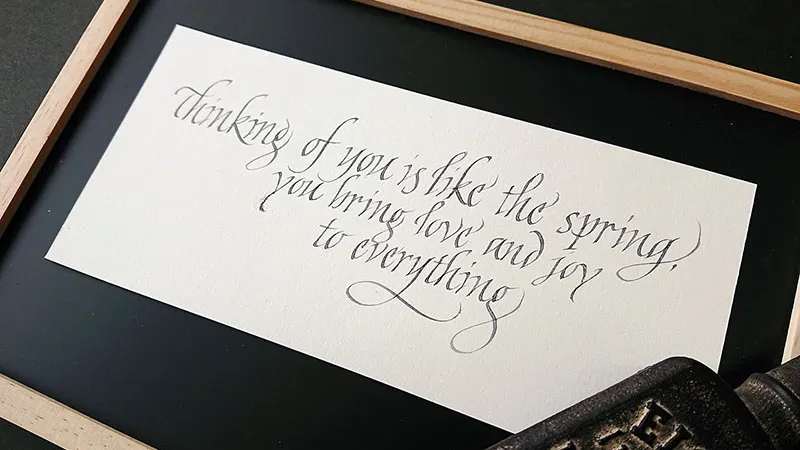 thinking of you is like the spring,
you bring love and joy
to everything